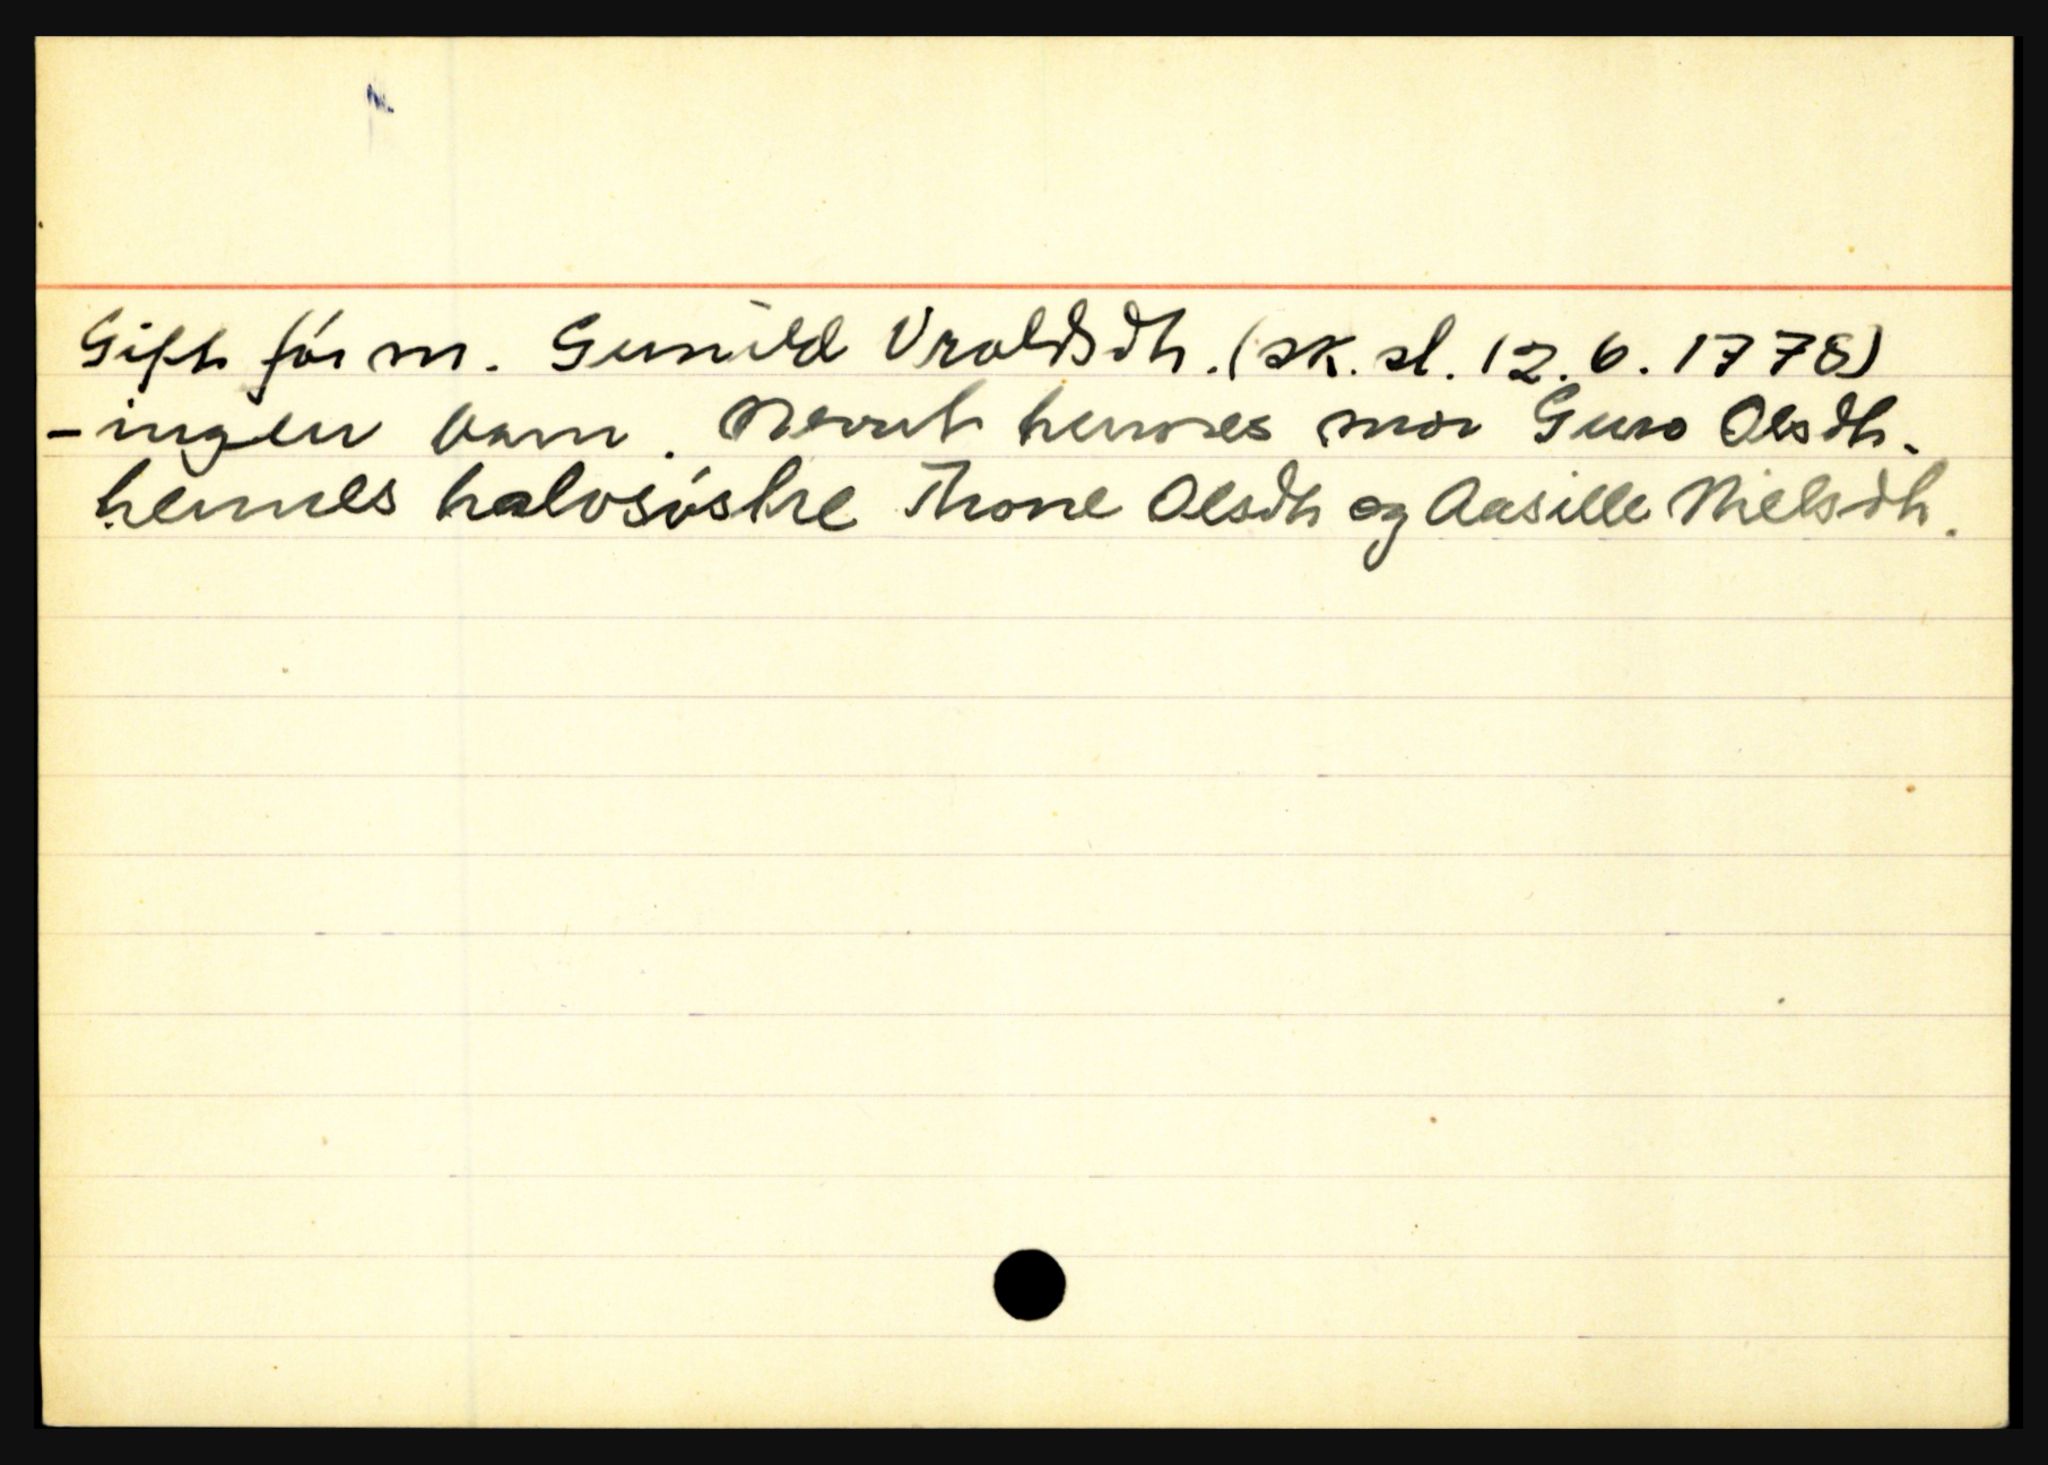 Gift før m. Gunild Vraldsdtr. (sk. sl. 12.6.1778)
- ingen barn. Nevnt hennes mor Guro Olsdtr.
hennes halvsøstre Thone Olsdtr og Aasille Nielsdtr.